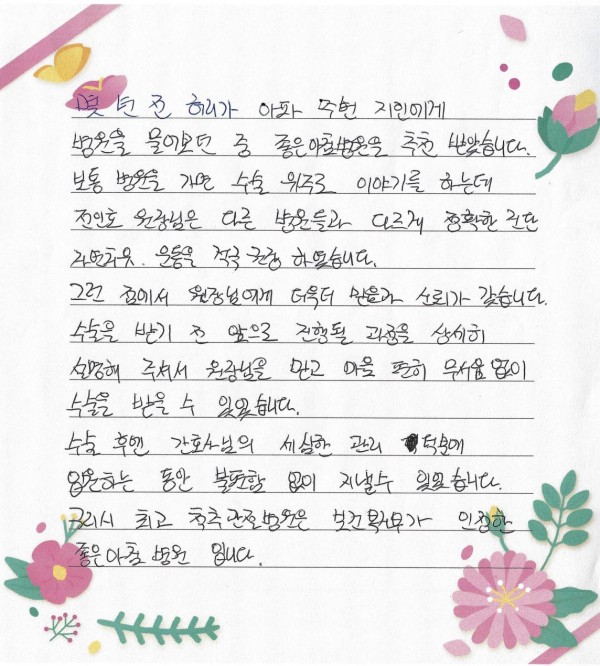 몇 년 전 허리가 아파 주변 지인에게
병원을 물어보던 중 좋은아침병원을 추천 받았습니다.
보통 병원을 가면 수술 위주로 이야기를 하는데
전인호 원장님은 다른 병원들과 다르게 정확한 진단
자연치유. 운동을 적극 권장 하였습니다.
그런 점에서 원장님에게 더욱더 믿음과 신뢰가 갔습니다.
수술을 받기 전 앞으로 진행될 과정을 상세히
설명해 주셔서 원장님을 믿고 마음 편히 무서움 없이
수술을 받을 수 있었습니다.
수술 후엔 간호사님의 세심한 관리 덕분에
입원하는 동안 불편함 없이 지낼수 있었습니다.
역시 최고 척추관절병원은 보건복지부가 인정한
좋은아침 병원 입니다.